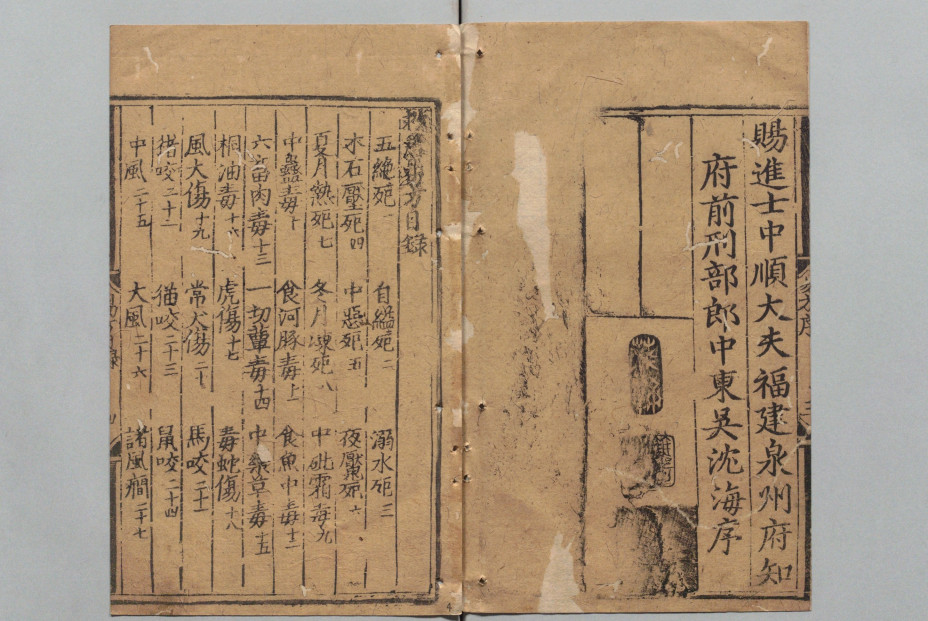 賜進士中順大夫福建泉州府知
府前刑部郎中東吳沈海序
救急易方目錄
五絕死一 自縊死二 溺水死三
木石壓死四 中惡死五 夜魘死六
夏月熱死七 冬月凍死八 中砒霜毒九
中蠱毒十 食河豚毒十一 食魚中毒十二
六畜肉毒十三 一切蕈毒十四 中藥草毒十五
桐油毒十六 虎傷十七 毒蛇傷十八
風犬傷十九 常犬傷二十 馬咬二十一
猪咬二十二 猫咬二十三 鼠咬二十四
中風二十五 大風二十六 諸風癇二十七